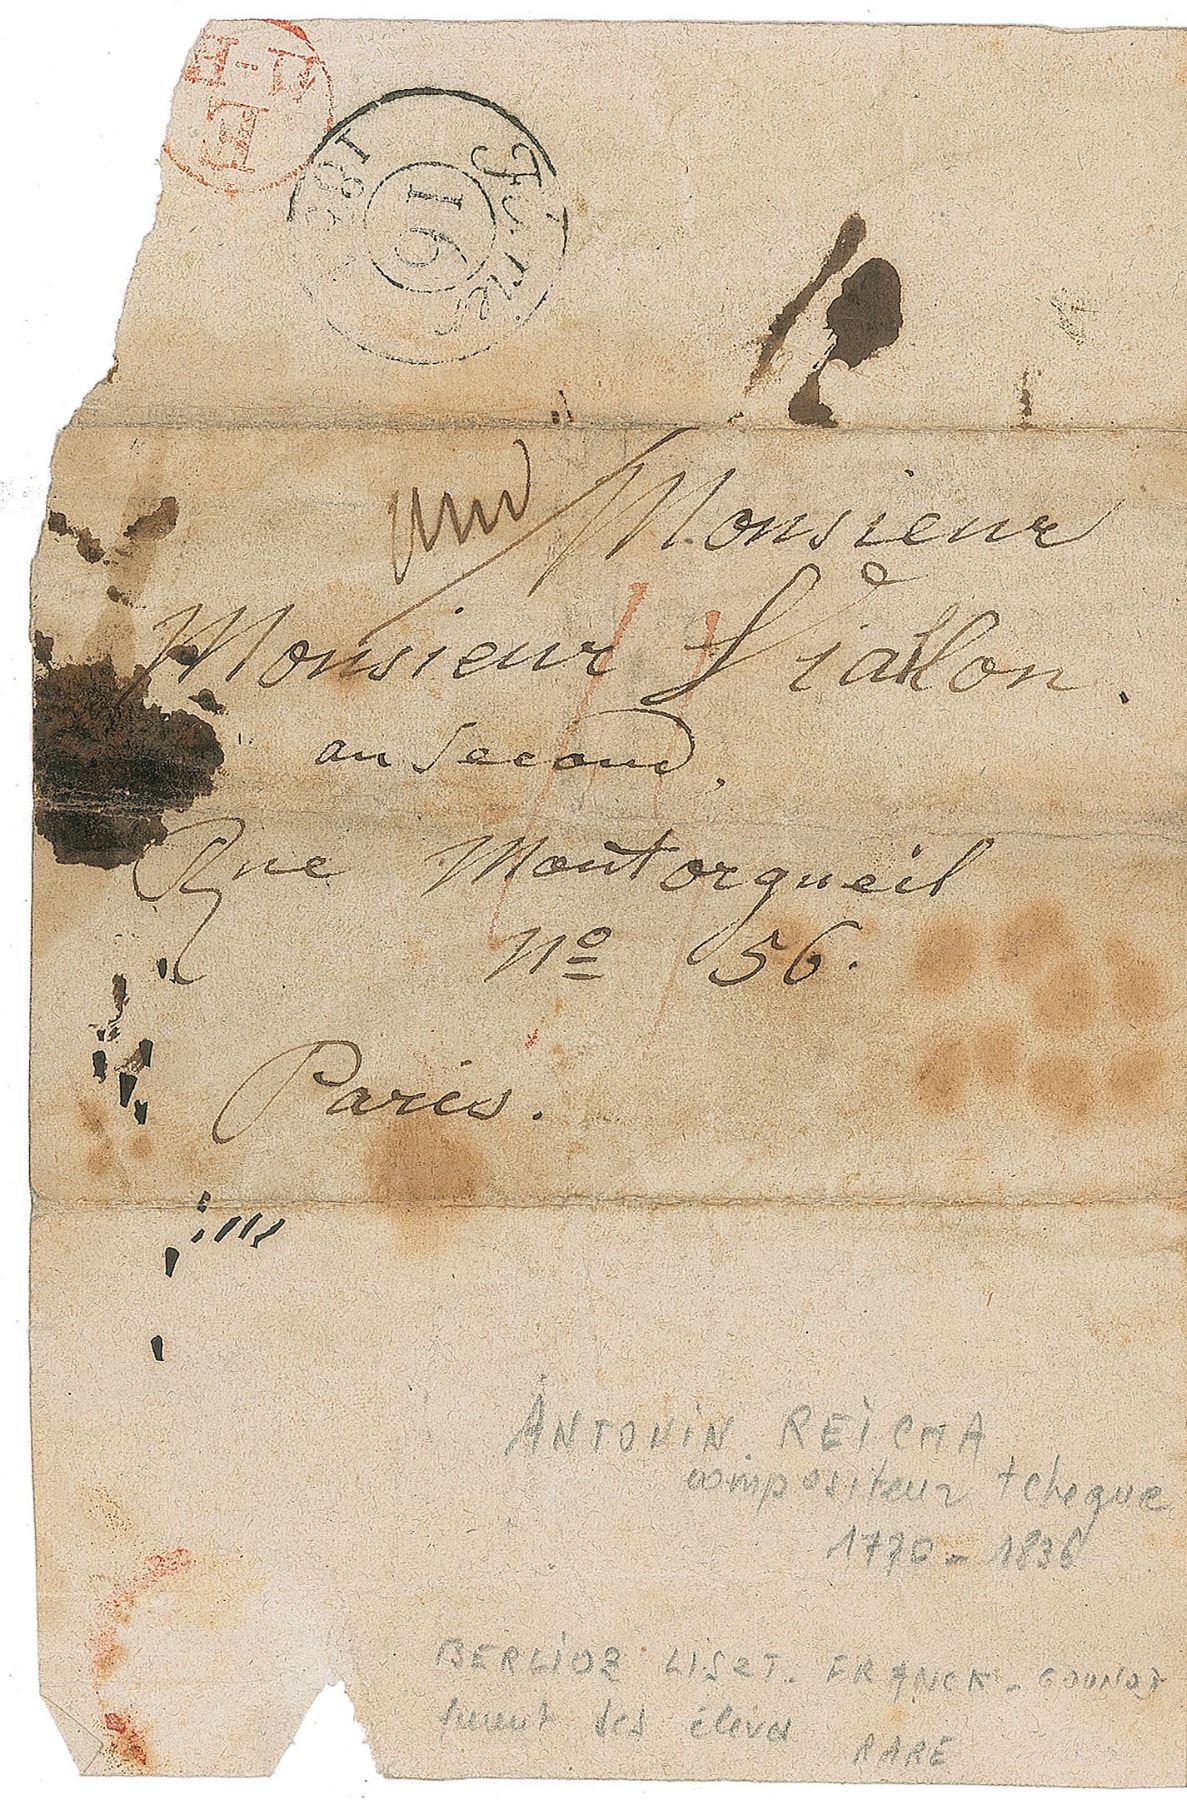 E
16
Monsieur
Monsieur Viallon.
au second,
Rue Montorgueil
No 56.
Paris.
ANTONIN REÏCHA
compositeur tcheque
1770 - 1836
BERLIOZ LISZT. FRANCK - GOUNOD
furent ses élèves
RARE